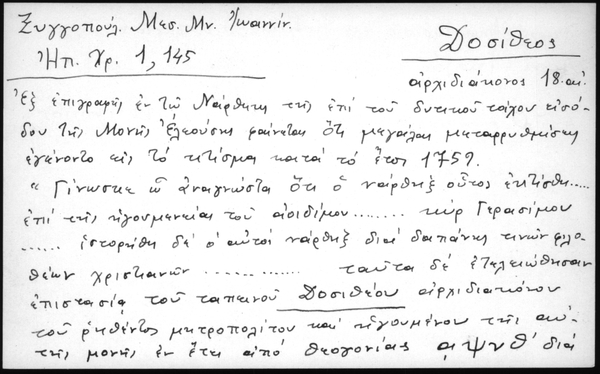 Ξυγγοπούλ. Μεσ. Μν. Ἰωαννίν.
Ἠπ. Χρ. 1, 145
Δοσίθεος
ἀρχιδιάκονος 18. αἰ.
Ἐξ ἐπιγραφῆς ἐν τῷ Νάρθηκι τῆς ἐπί τοῦ δυτικοῦ τοίχου εἰσό-
δου τῆς Μονῆς Ἐλεούσης φαίνεται ὅτι μεγάλαι μεταρρυθμίσεις
ἐγένοντο εἰς τό κτίσμα κατά τό ἔτος 1759.
" Γίνωσκε ὦ ἀναγνῶστα ὅτι ὁ νάρθηξ οὗτος ἐκτίσθη.....
ἐπί τῆς ἡγουμενείας τοῦ ἀοιδίμου........ κύρ Γερασίμου
...... ἱστορήθη δέ ὁ αὐτός νάρθηξ διά δαπάνης τινῶν φιλο-
θέων χριστιανῶν .............. ταῦτα δέ ἐτελειώθησαν
ἐπιστασίᾳ τοῦ ταπεινοῦ Δοσιθέου ἀρχιδιακόνου
τοῦ ῥηθέντος μητροπολίτου καί ἡγουμένου τῆς αὐ-
τῆς μονῆς ἐν ἔτει ἀπό θεογονίας αψνθ' διά